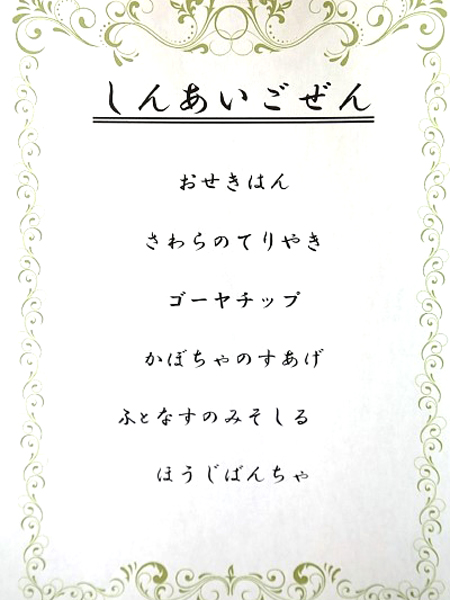 しんあいごぜん
おせきはん
さわらのてりやき
ゴーヤチップ
かぼちゃのすあげ
ふとなすのみそしる
ほうじばんちゃ